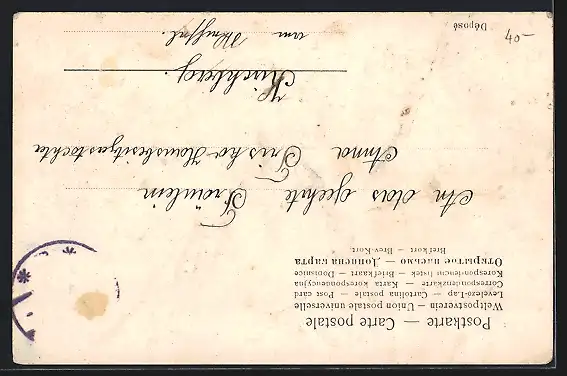 Postkarte — Carte postale
Weltpostverein — Union postale universelle
Levelező-Lap — Cartolina postale — Post card
Correspondenzkarte — Karta korespondencyjna
Korespondenční lístek — Briefkaart — Dopisnice
Открытое письмо — Дописна карта
Brefkort — Brev-Kort
An das geehrte Fräulein
Anna Trisko Hausbesitzerstochter
Kirchberg.
am
Déposé
40-